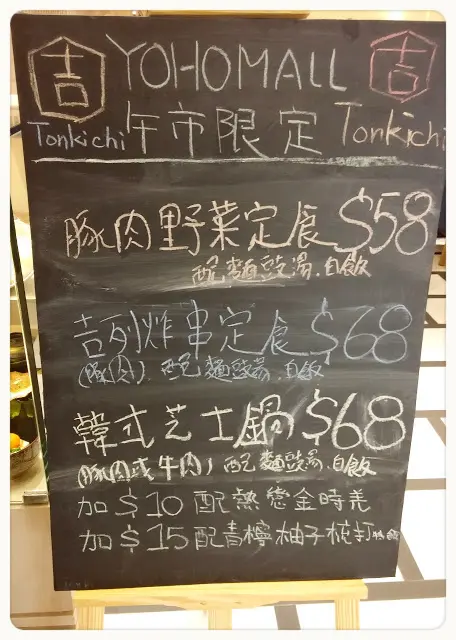 吉 YOHOMALL 吉
Tonkichi 午市限定 Tonkichi
豚肉野菜定食 $58
配麵豉湯.白飯
吉列炸串定食 $68
(豚肉).配麵豉湯.白飯
韓式芝士鍋 $68
(豚肉或牛肉)配麵豉湯.白飯
加 $10 配熱戀金時羌
加 $15 配青檸柚子梳打